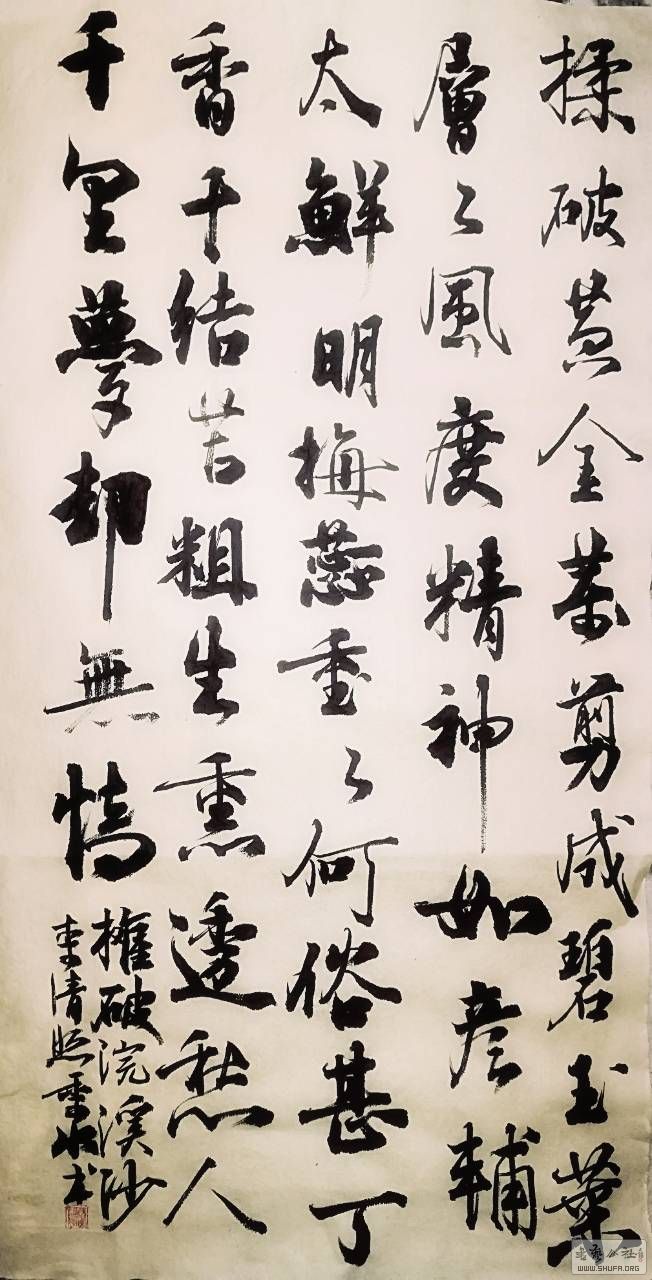 揉破黄金萬剪成碧玉葉
層々風度精神如彦輔
太鮮明梅蕊重々何俗甚丁
香千结苦粗生熏透愁人
千里夢却無情
破浣溪沙
李清照
WWW.SHUFA.ORG